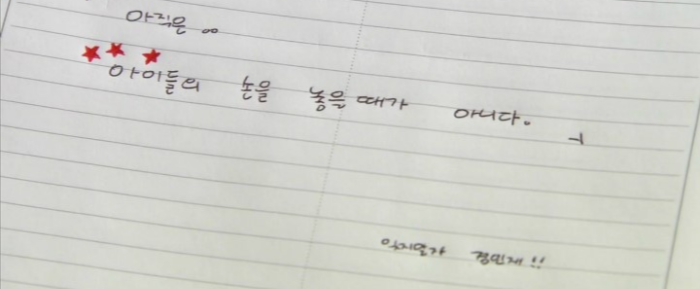 아직은 ∞
★★ ★
아이들의 손을 놓을 때가 아니다. ㅓ
억지열가 경민제!!